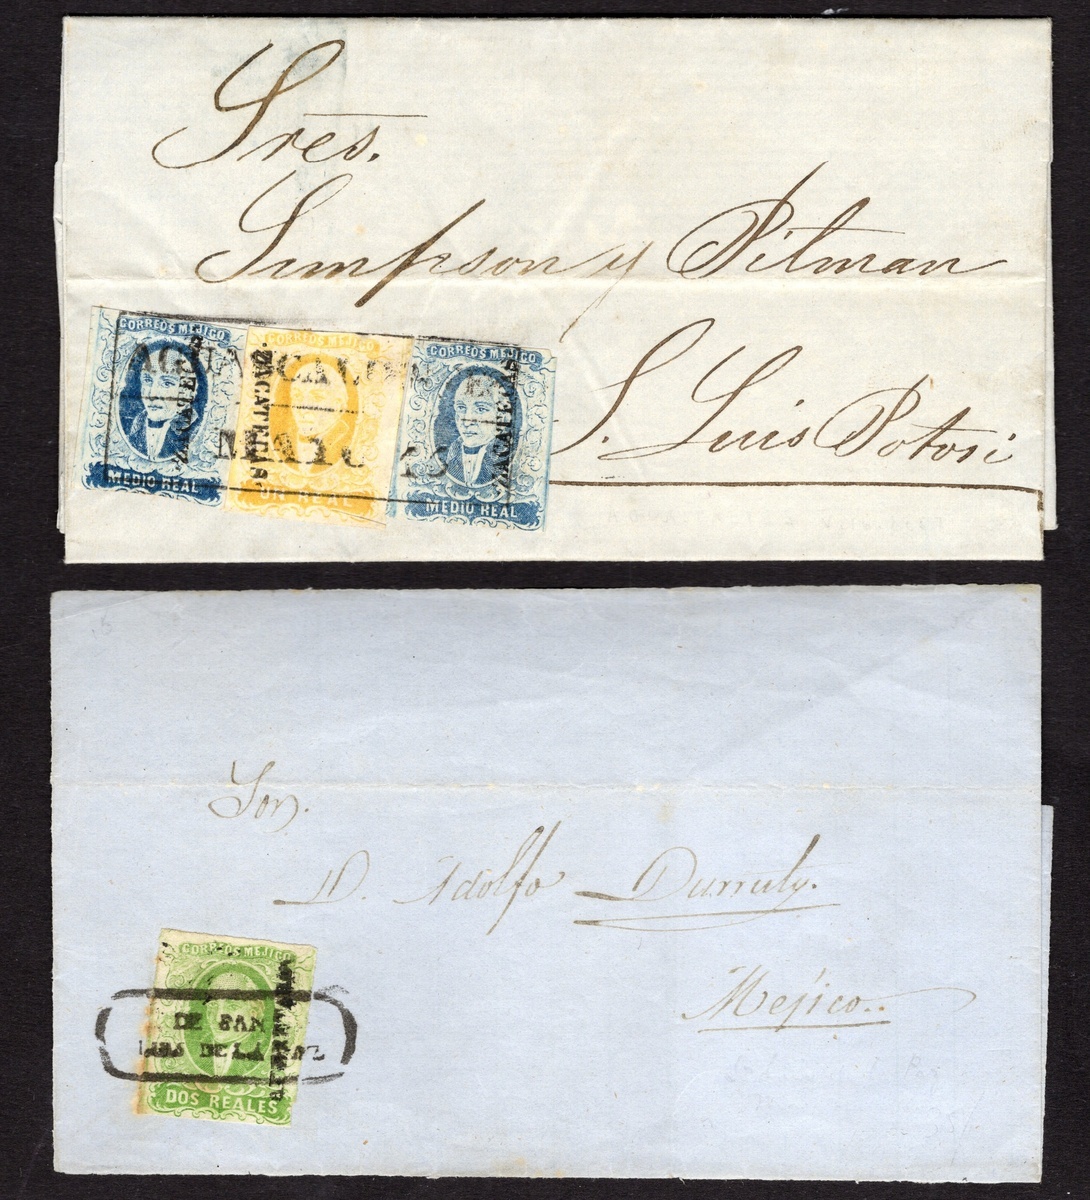 Sres.
Simpson y Pitman
S. Luis Potosi
CORREOS MEJICO
ZACATECAS
MEDIO REAL
CORREOS MEJICO
ZACATECAS
UN REAL
CORREOS MEJICO
ZACATECAS
MEDIO REAL
AGUASCALIENTES
MAYO
Sor.
D. Adolfo Durruty.
Mejico..
CORREOS MEJICO
DOS REALES
DE SAN
LUIS DE LA PAZ